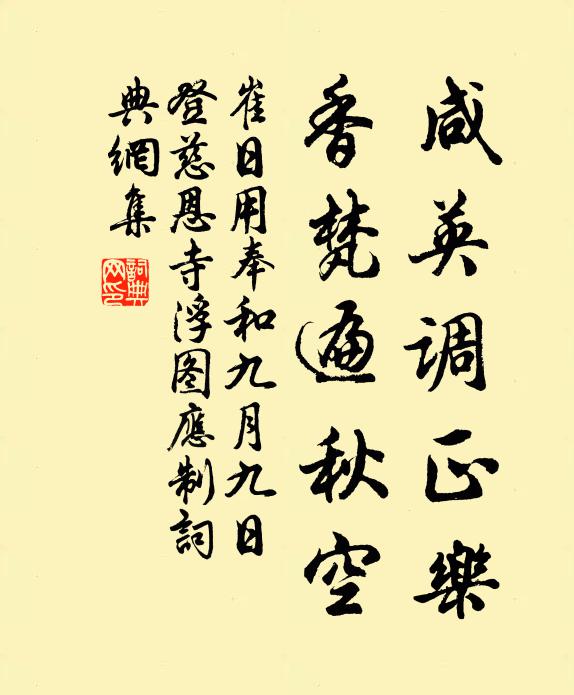 咸英调正樂
香梵遍秋空
崔日用奉和九月九日
登慈恩寺浮图應制詞
典網集
詞典网印